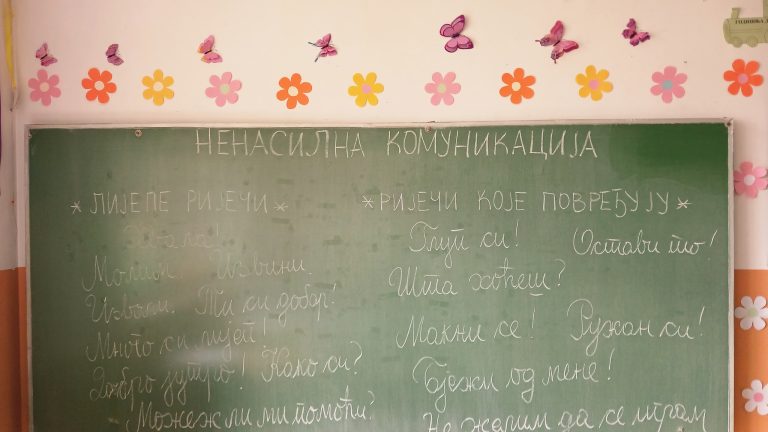 ГОДИШЊА Д
НЕНАСИЛНА КОМУНИКАЦИЈА
* ЛИЈЕПЕ РИЈЕЧИ *
Хвала!
Молим. Извини.
Изволи. Ти си добар!
Много си лијеп!
Добро јутро! Како си?
Можеж ли ми помоћи?
* РИЈЕЧИ КОЈЕ ПОВРЕЂУЈУ *
Глуп си! Остави то!
Шта хоћеш?
Макни се! Ружан си!
Бјежи од мене!
Не желим да се играм